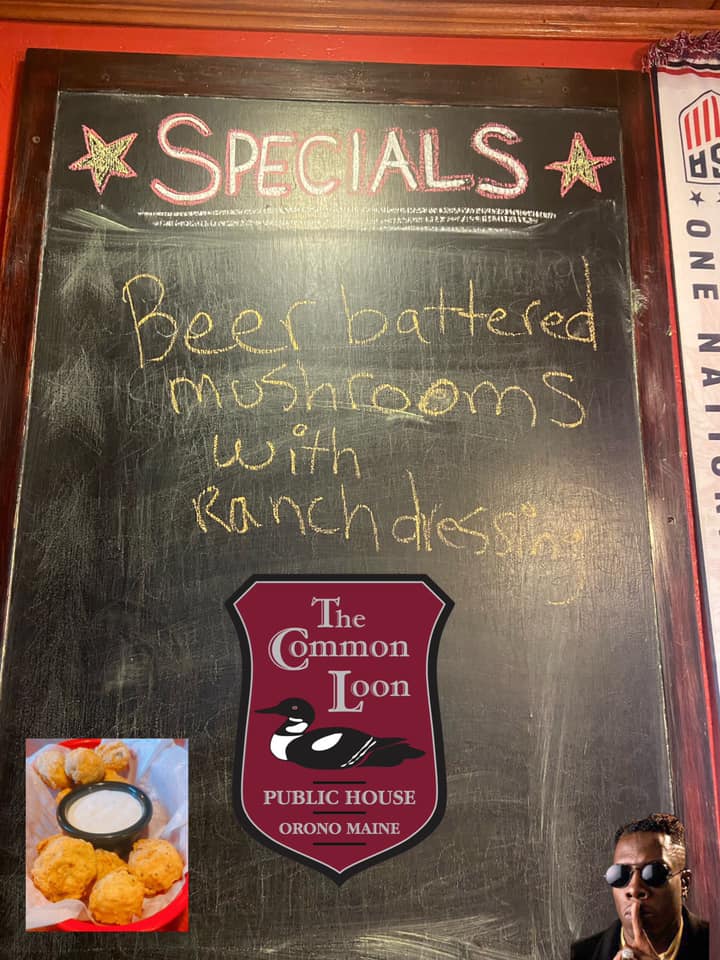 SPECIALS
Beer battered
mushrooms
with
Ranch dressing
The
Common
Loon
PUBLIC HOUSE
ORONO MAINE
ONE NATION